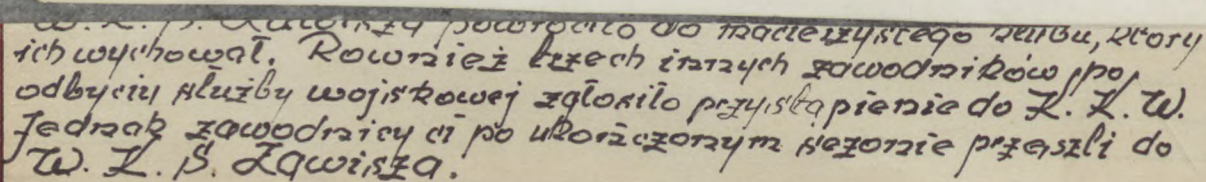 W. K. S. Zawisza powróciło do macierzystego klubu, który
ich wychował. Rownież trzech innych zawodników, po
odbyciu służby wojskowej zgłosiło przystąpienie do K. K. W.
Jednak zawodnicy ci po ukończonym sezonie przeszli do
W. K. S. Zawisza.